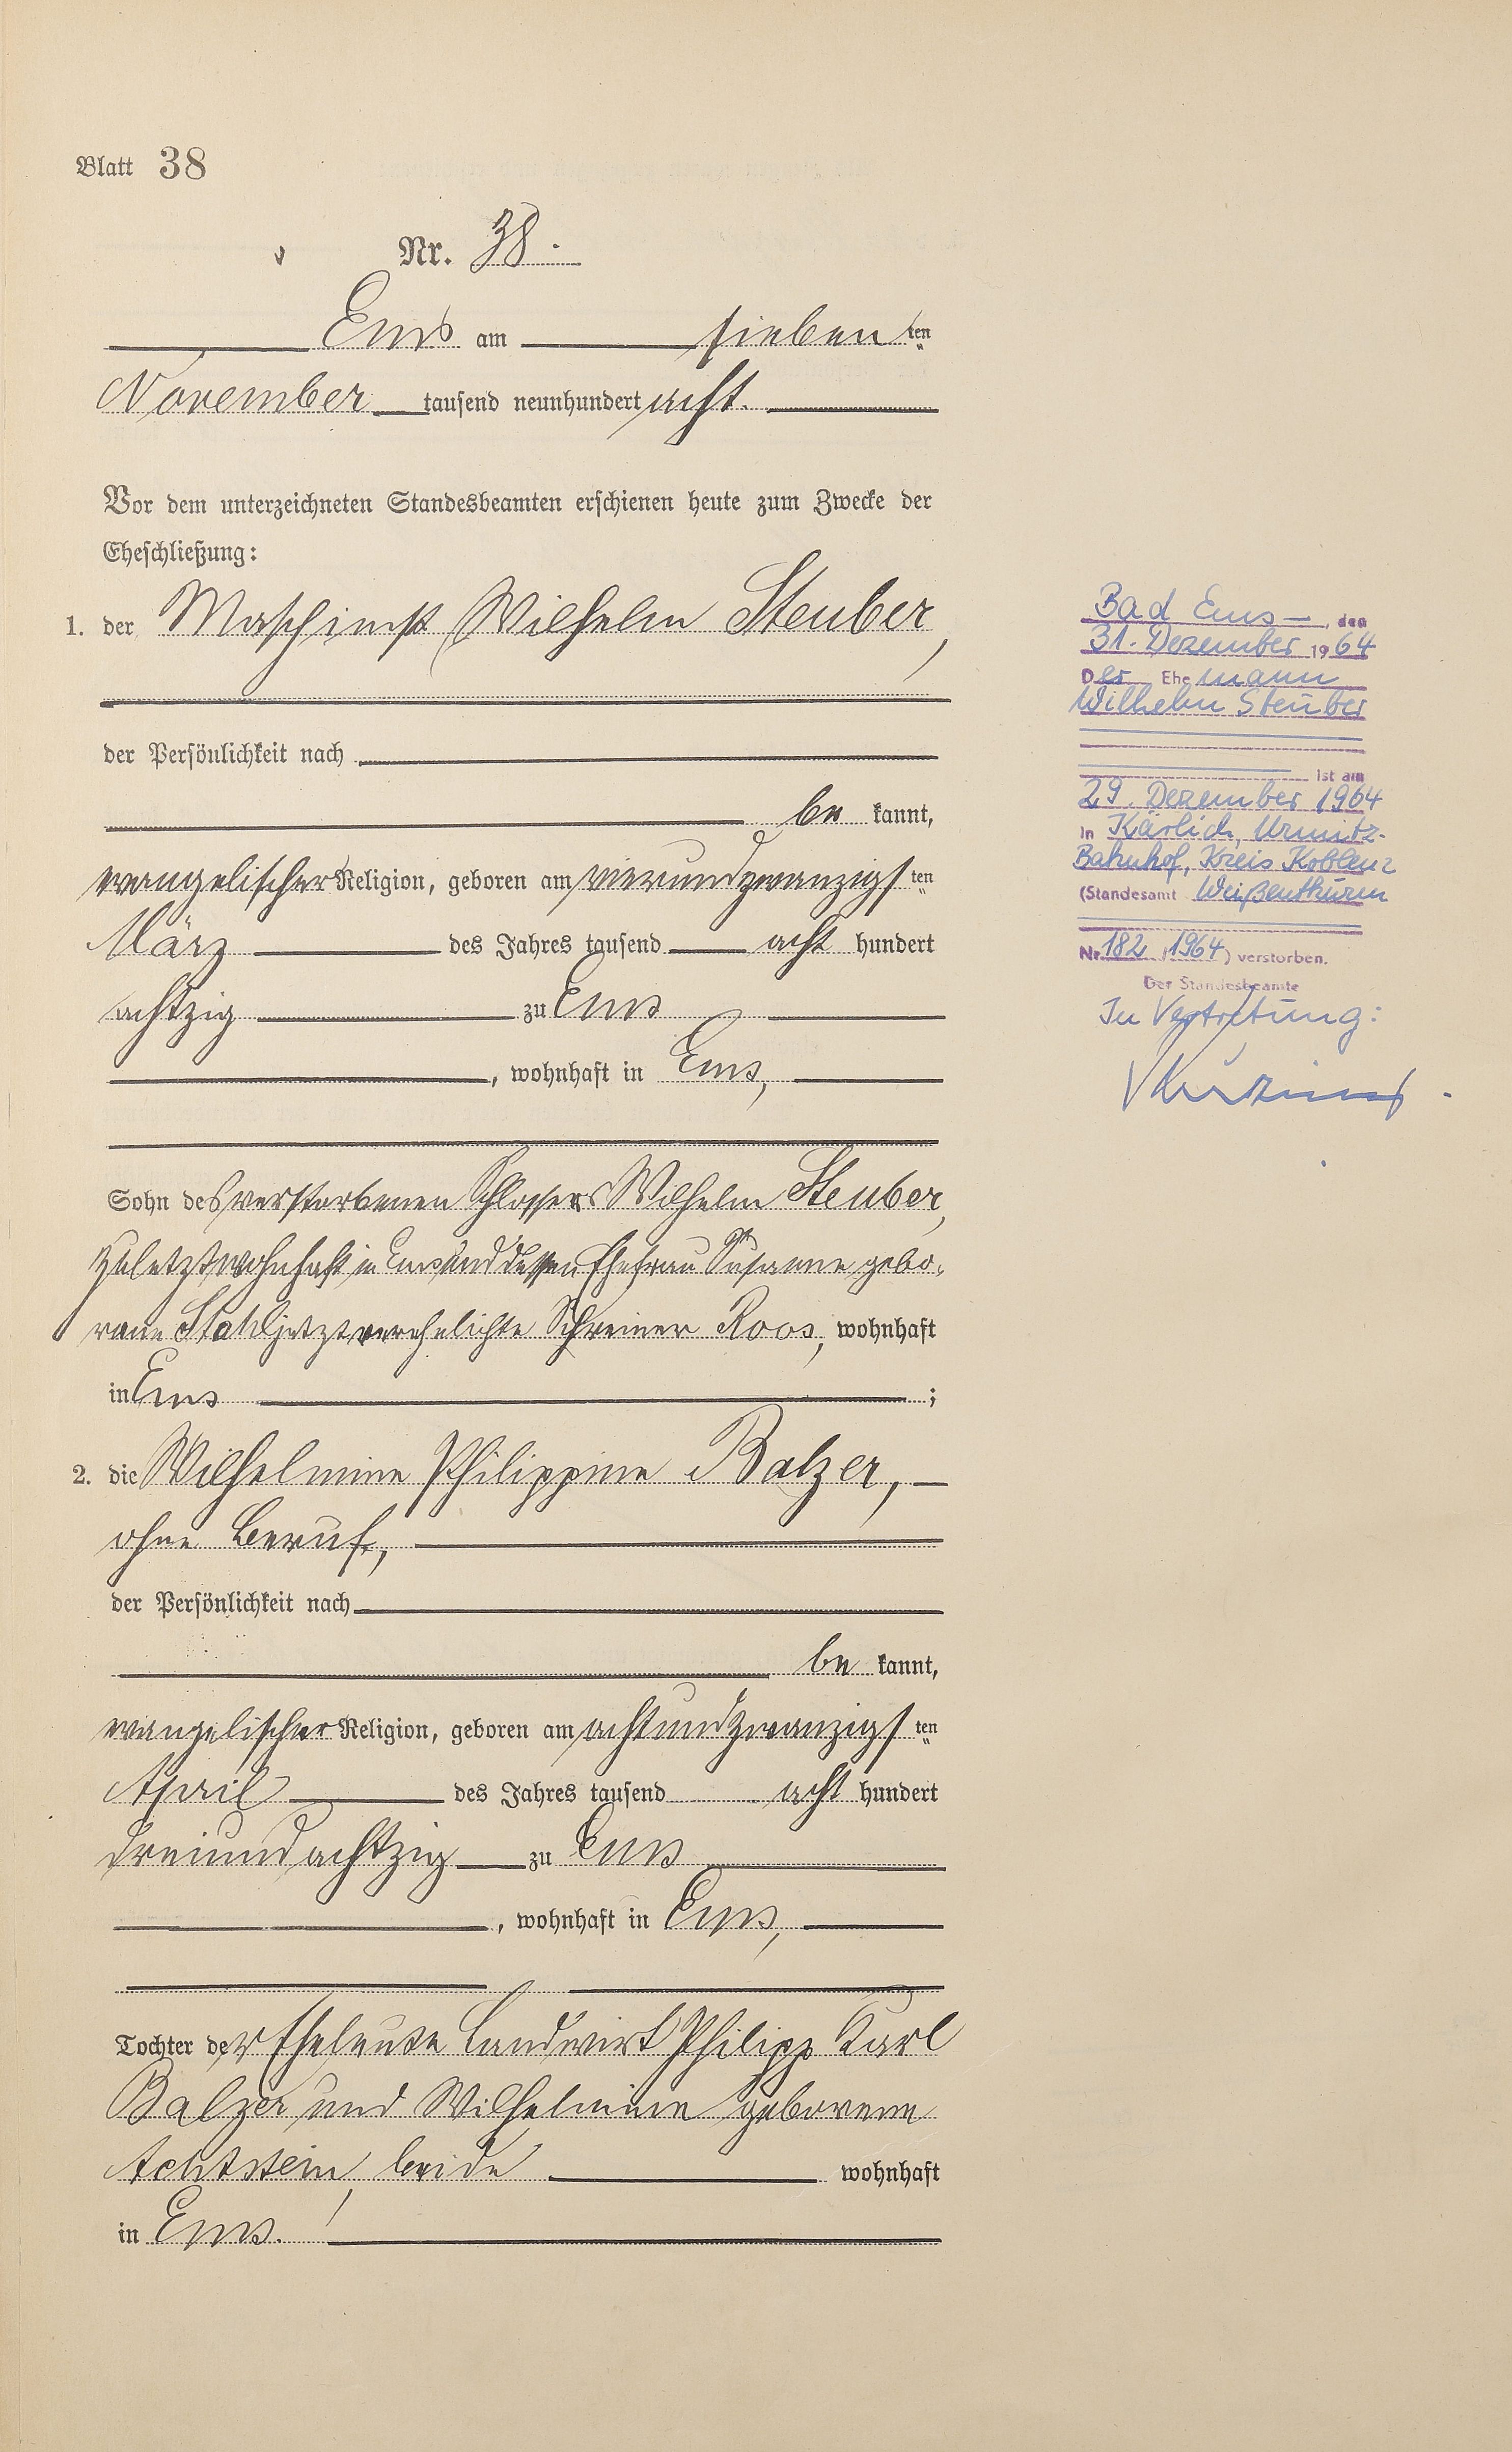 Blatt 38
Nr. 38.
Ems am siebenten
November tausend neunhundert acht.
Vor dem unterzeichneten Standesbeamten erschienen heute zum Zwecke der
Eheschließung:
1. der Maschinist Wilhelm Steuber,
der Persönlichkeit nach
be kannt,
evangelischer Religion, geboren am vierundzwanzigsten
März des Jahres tausend acht hundert
achtzig zu Ems
, wohnhaft in Ems,
Sohn des verstorbenen Schlossers Wilhelm Steuber,
zuletzt wohnhaft in Ems und dessen Ehefrau Susanne gebo-
rene Stahl jetzt verehelichte Schreiner Roos, wohnhaft
in Ems ;
2. die Wilhelmine Philippine Balzer,
ohne Beruf,
der Persönlichkeit nach
be kannt,
evangelischer Religion, geboren am achtundzwanzigsten
April des Jahres tausend acht hundert
dreiundachtzig zu Ems
, wohnhaft in Ems,
Tochter der Eheleute Landwirt Philipp Karl
Balzer und Wilhelmine geborene
Achtstein, beide wohnhaft
in Ems.
Bad Ems, den
31. Dezember 1964
Der Ehemann
Wilhelm Steuber
ist am
29. Dezember 1964
in Kärlich, Urmitz-
Bahnhof, Kreis Koblenz
(Standesamt Weißenthurm
Nr. 182, 1964) verstorben.
Der Standesbeamte
In Vertretung: